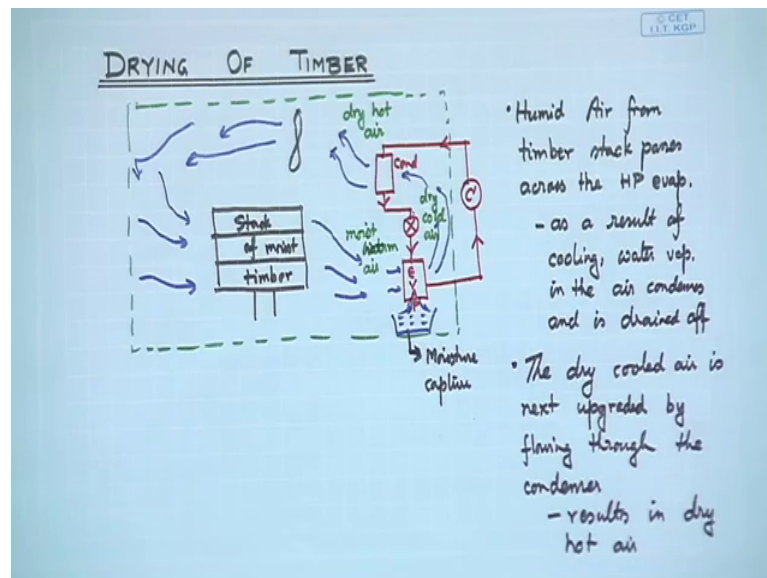 © CET
I.I.T. KGP
DRYING OF TIMBER
dry hot
air
Cond
dry
cold
air
C
moist
air
Stack
of moist
timber
E
V
Moisture
capture
• Humid Air from
timber stack passes
across the HP evap.
- as a result of
cooling, water vap.
in the air condenses
and is drained off
• The dry cooled air is
next upgraded by
flowing through the
condenser
- results in dry
hot air